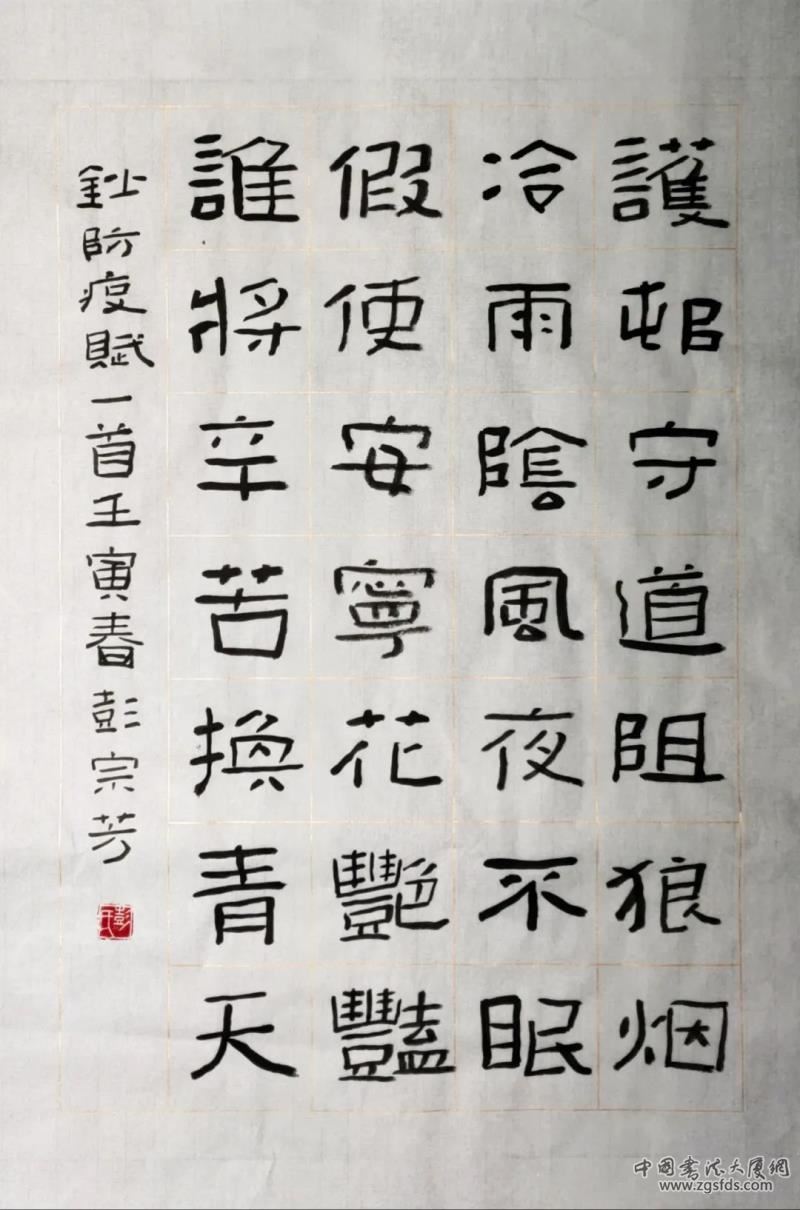 護邨守道阻狼烟
冷雨陰風夜不眠
假使安寧花艷豔
誰將辛苦換青天
鈔防疫賦一首壬寅春彭宗芳
中国书法大厦網
www.zgsfds.com